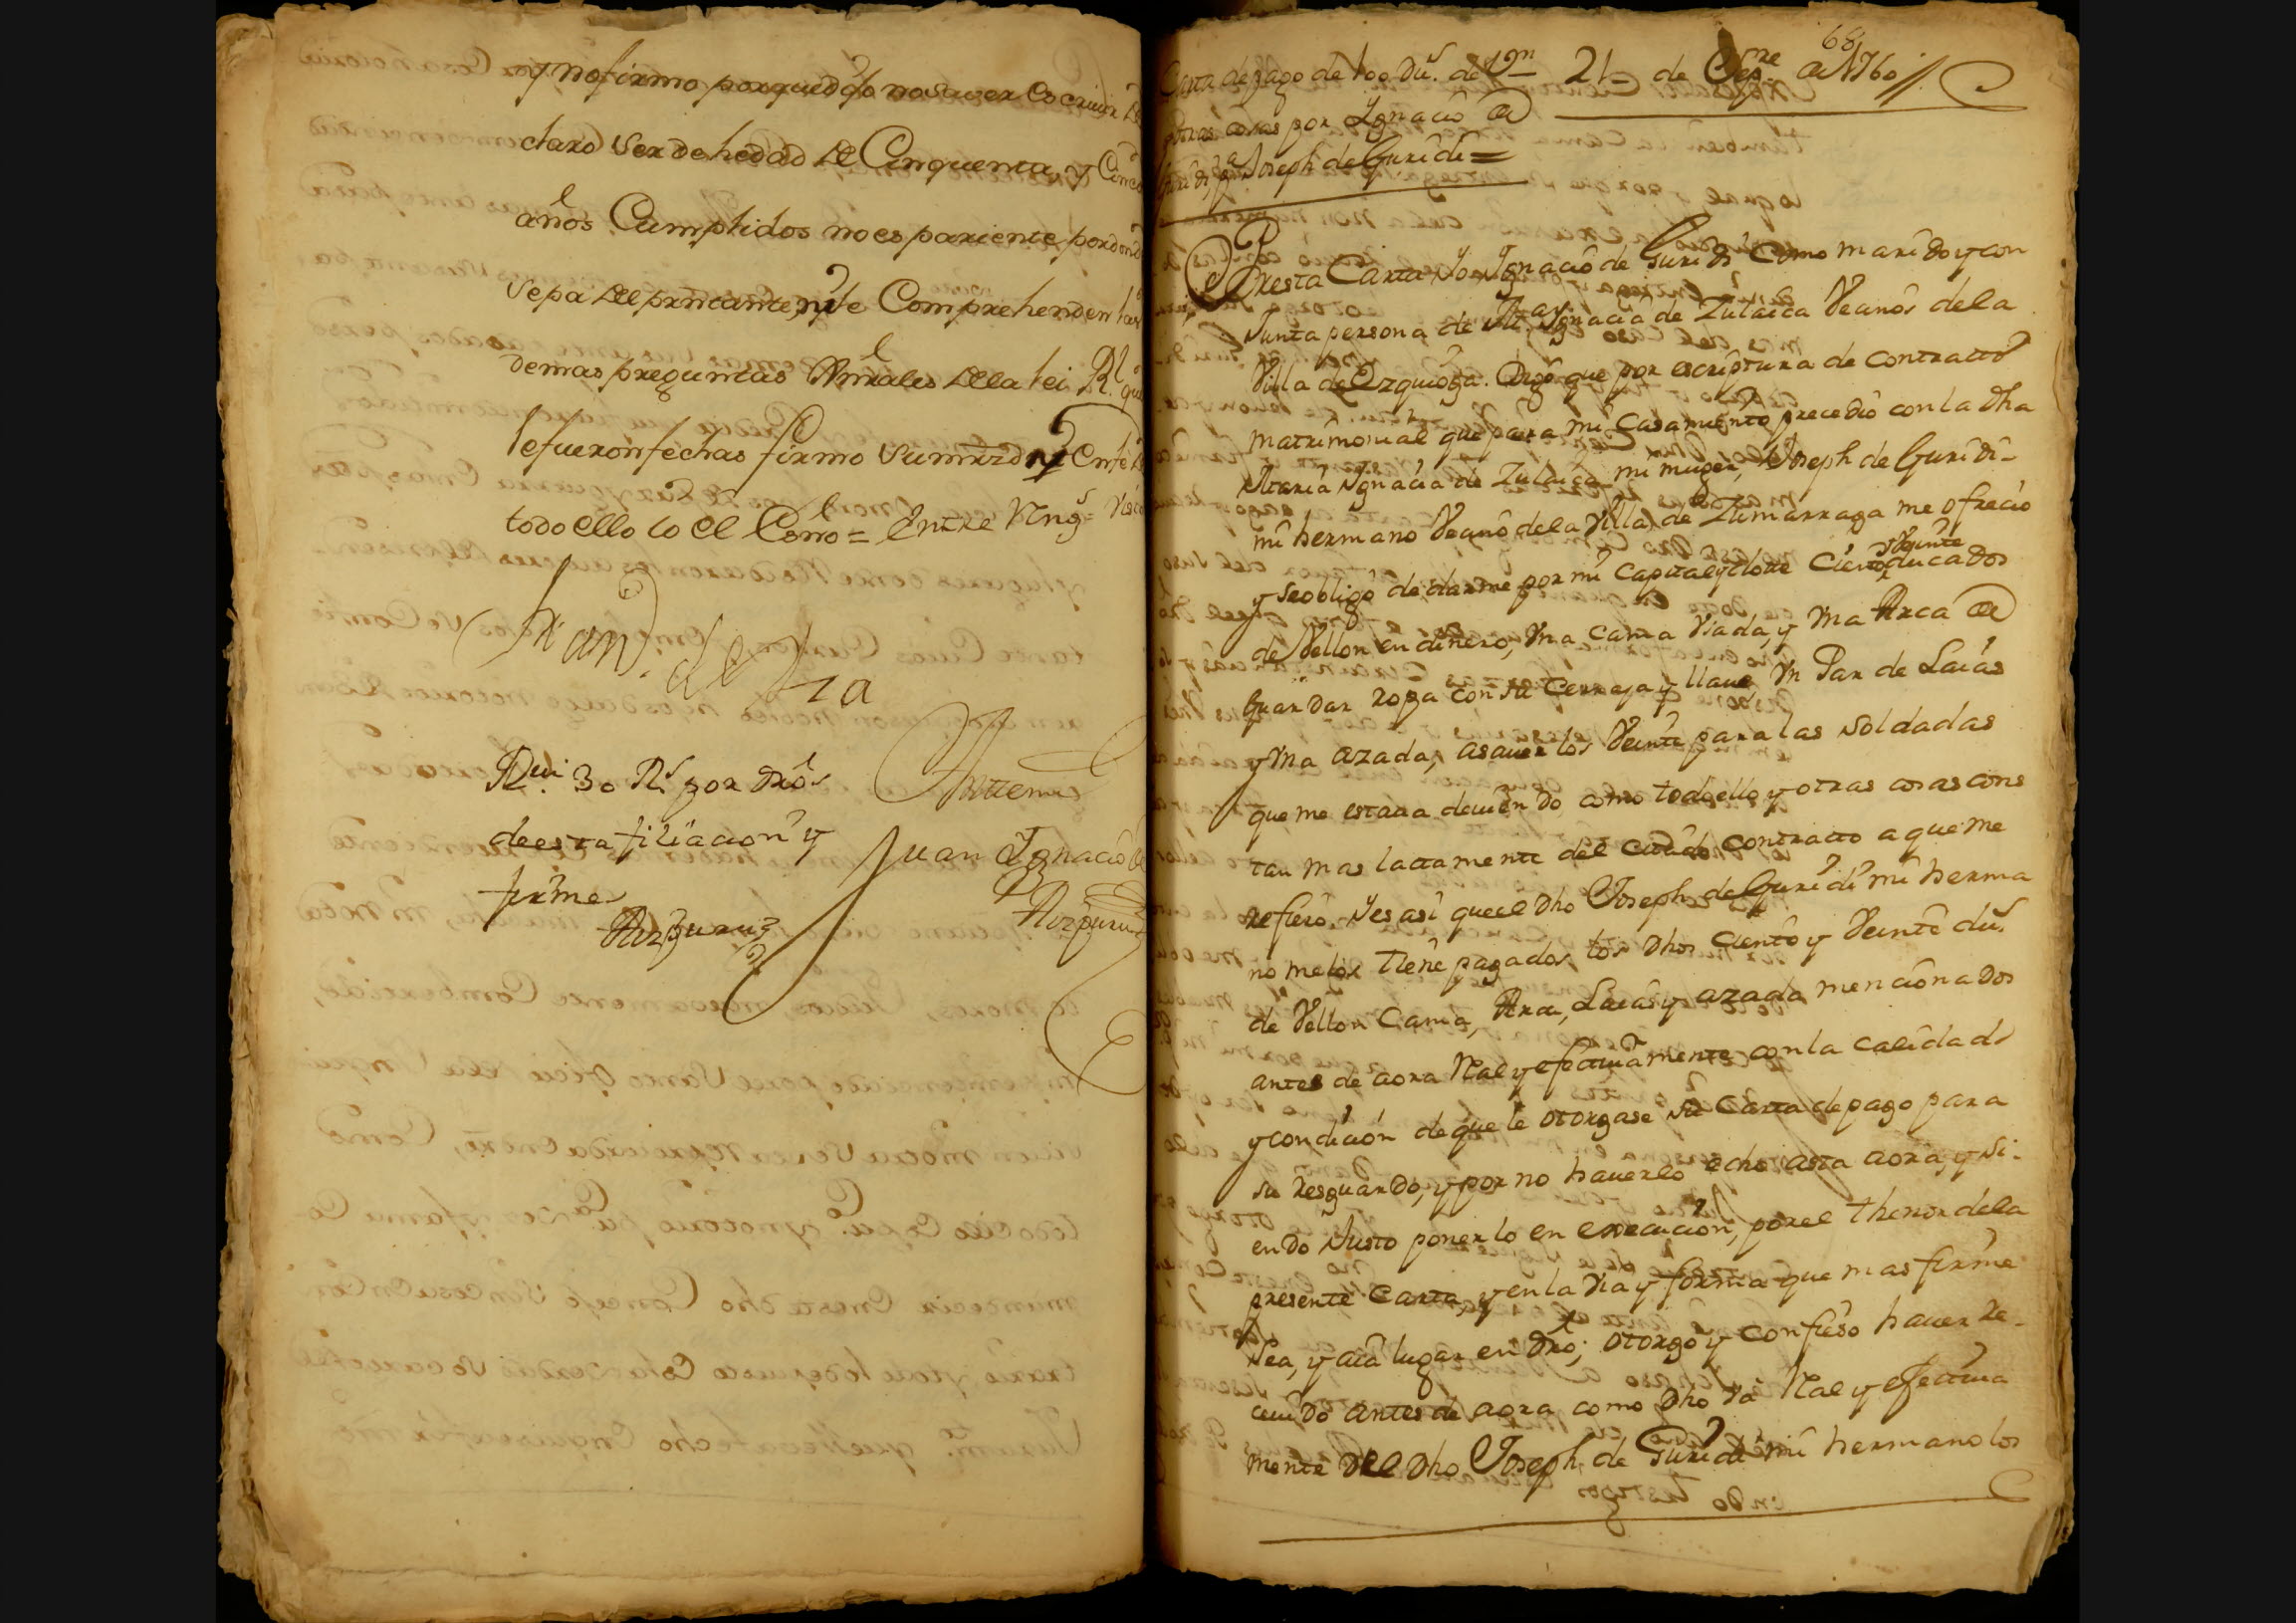 y no firmo porque dijo no saver escrivir de
claro ser de hedad de Cinquenta, y Cinco
años Cumplidos no es pariente por donde
sepa del pntante, ni le Comprehenden las
demas preguntas Gnrales de la lei Rl. que
le fueron fechas firmo su mrzd y en fe de
todo ello lo el Esno = Entre Rng.s
Juan de
Za
Rui. 30 Rs. por dros
de esta filiacion y
firme
Aizpuru
Antemi
Juan Ignacio de
Aizpuru
68
Carta de pago de 100 dus. de Vn
y otras cosas por Ignacio de
Guridi, pa Joseph de Guridi =
21 de Sepre de 1760
Por esta Carta, Yo Ignacio de Guridi como marido y con
Junta persona de Mar Ignacia de Zulaica Vecinos de la
Villa de Ezquioga. Digo que por escriptura de contratto
matrimonial que para mi Casamiento precedio con la dha
Maria Ignacia de Zulaica mi muger, Joseph de Guridi
mi hermano Vecino de la Villa de Zumarraga me ofrecio
y se obligo de darme por mi Capital y dotte Ciento y Veinte ducados
de Vellon en dinero, Vna cama Viada, y Vna Arca de
Guardar ropa con su cerraja y llave, Vn Par de Laias
y Vna azada, asaver los Veinte para las soldadas
que me estava deviendo, como todo ello y otras cosas cons
tan mas lactamente del citado contracto a que me
refiero. Y es asi que el dho Joseph de Guridi mi herma
no me los tiene pagados los dhos ciento y Veinte dus.
de Vellon Cama, Arca, Laias y azada mencionados
antes de aora Real y efectivamente con la calidad
y condicion de que le otorgase su Carta de pago para
su resguardo, y por no haverlo echo asta aora, y si-
endo Justo ponerlo en execucion, por el thenor de la
presente Carta, y en la via y forma que mas firme
sea, y aia lugar en dro; otorgo y confieso haver re-
civido antes de aora como dho va Real y efectiva
mente del dho Joseph de Guridi mi hermano los